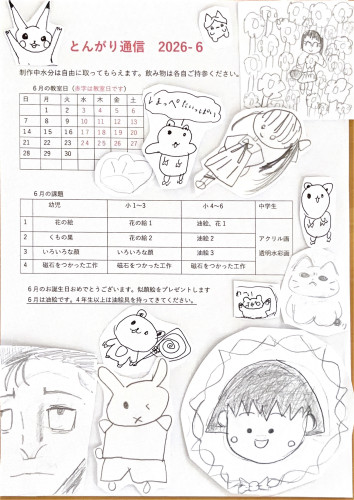 とんがり通信　2026-6
制作中水分は自由に取ってもらえます。飲み物は各自ご持参ください。
6月の教室日（赤字は教室日です）
日 月 火 水 木 金 土
1 2 3 4 5 6
7 8 9 10 11 12 13
14 15 16 17 18 19 20
21 22 23 24 25 26 27
28 29 30
6月の課題
幼児 小1～3 小4～6 中学生
1 花の絵 花の絵1 油絵、花1
2 くもの巣 花の絵2 油絵2 アクリル画
3 いろいろな顔 いろいろな顔 油絵3 透明水彩画
4 磁石をつかった工作 磁石をつかった工作 磁石をつかった工作
6月のお誕生日おめでとうございます。似顔絵をプレゼントします
6月は油絵です。4年生以上は油絵具を持ってきてください。